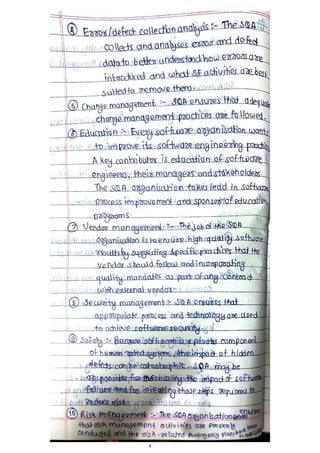 ④ Error/defect collection analysis :- The SQA
collects and analyses error and defect
data to better understand how errors are
introduced and what SE activities are best
suited to remove them
⑤ Change management :- SQA ensures that adequate
change management practices are followed.
⑥ Education :- Every software organisation wants
to improve its software engineering practices
A key contributor is education of software
engineers, their managers and stakeholders.
The SQA organisation takes lead in software
process improvement and sponsors of education
programs.
⑦ Vendor management :- The job of the SQA
organisation is to ensure high quality software
results by suggesting specific practices that the
vendor should follow and incorporating
quality mandates as part of any contract
with external vendor
⑧ Security management :- SQA ensures that
appropriate process and technology are used
to achieve software security.
⑨ Safety :- Because software is a pivotal component
of human rated systems, the impact of hidden
defects can be catastrophic. SQA may be
responsible for assessing the impact of software
failure and for initiating those steps required to
reduce risk
⑩ Risk management :- The SQA organisation ensures
that risk management activities are properly
conducted and the risk-related contingency plans have been